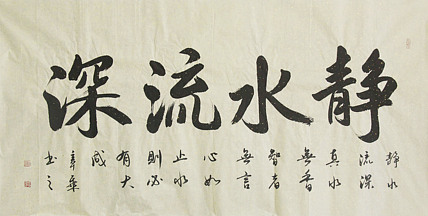 静水流深
静水
流深
真水
無香
智者
無言
心如
止水
則必
有大
成
書之